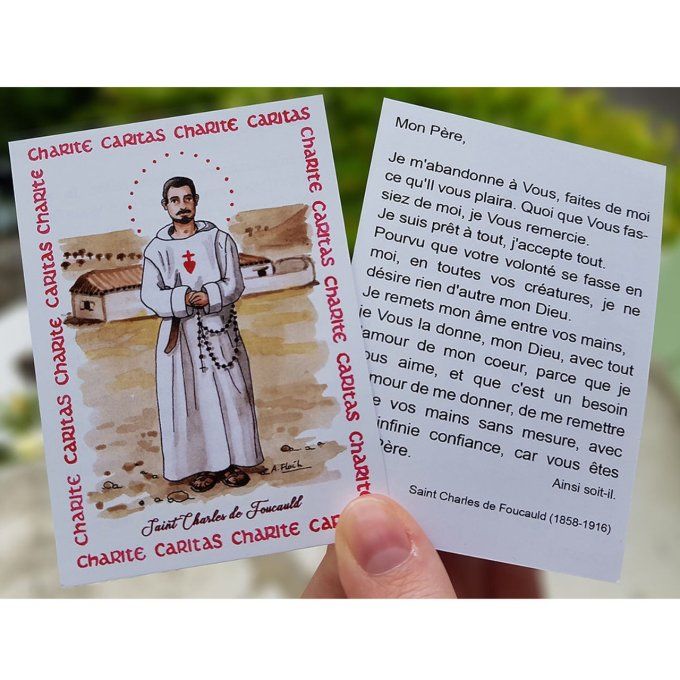 CHARITE CARITAS CHARITE CARITAS
CHARITE CARITAS CHARITE CARITAS CHARITE
CHARITE CARITAS CHARITE CARITAS CHARITE
A. Floc'h
Saint Charles de Foucauld
CHARITE CARITAS CHARITE
Mon Père,
Je m'abandonne à Vous, faites de moi
ce qu'Il vous plaira. Quoi que Vous fas-
siez de moi, je Vous remercie.
Je suis prêt à tout, j'accepte tout.
Pourvu que votre volonté se fasse en
moi, en toutes vos créatures, je ne
désire rien d'autre mon Dieu.
Je remets mon âme entre vos mains,
je Vous la donne, mon Dieu, avec tout
l'amour de mon coeur, parce que je
vous aime, et que c'est un besoin
d'amour de me donner, de me remettre
vos mains sans mesure, avec
infinie confiance, car vous êtes
Père.
Ainsi soit-il.
Saint Charles de Foucauld (1858-1916)